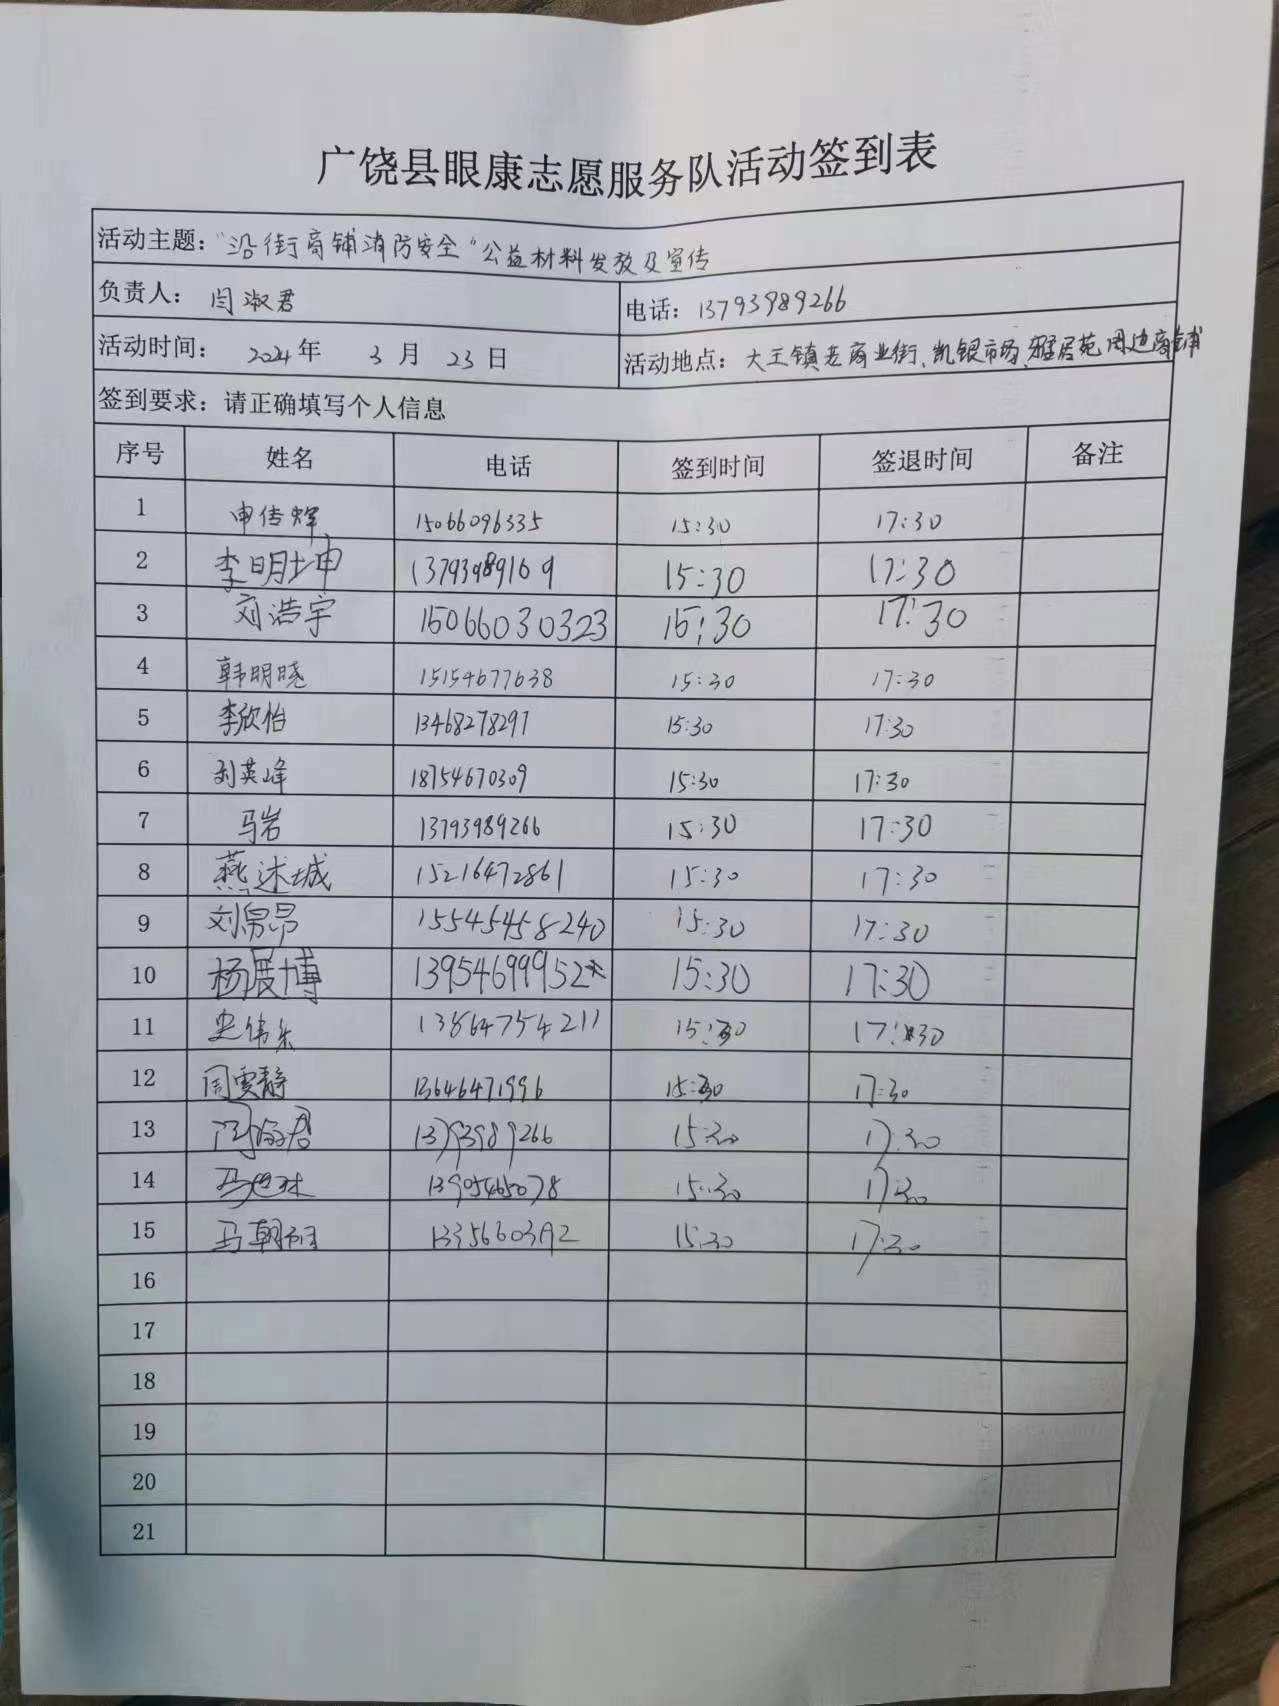 广饶县眼康志愿服务队活动签到表
活动主题："沿街商铺消防安全"公益材料发放及宣传
负责人：闫淑君 电话：13793989266
活动时间：2024年 3月 23日 活动地点：大王镇老商业街、凯银市场、雅居苑周边商铺
签到要求：请正确填写个人信息
序号 姓名 电话 签到时间 签退时间 备注
1 申传辉 15066096335 15:30 17:30
2 李明坤 13793989169 15:30 17:30
3 刘浩宇 15066030323 15:30 17:30
4 韩明晓 15154677638 15:30 17:30
5 李欣怡 13468278297 15:30 17:30
6 刘英峰 18754670309 15:30 17:30
7 马岩 13793989266 15:30 17:30
8 燕述城 15216472861 15:30 17:30
9 刘昂 15545458240 15:30 17:30
10 杨展博 13954699952 15:30 17:30
11 史伟东 13864754211 15:30 17:30
12 周雯静 13646471996 15:30 17:30
13 闫淑君 13793989266 15:30 17:30
14 13905465078 15:30 17:30
15 马朝阳 15:30 17:30
16
17
18
19
20
21